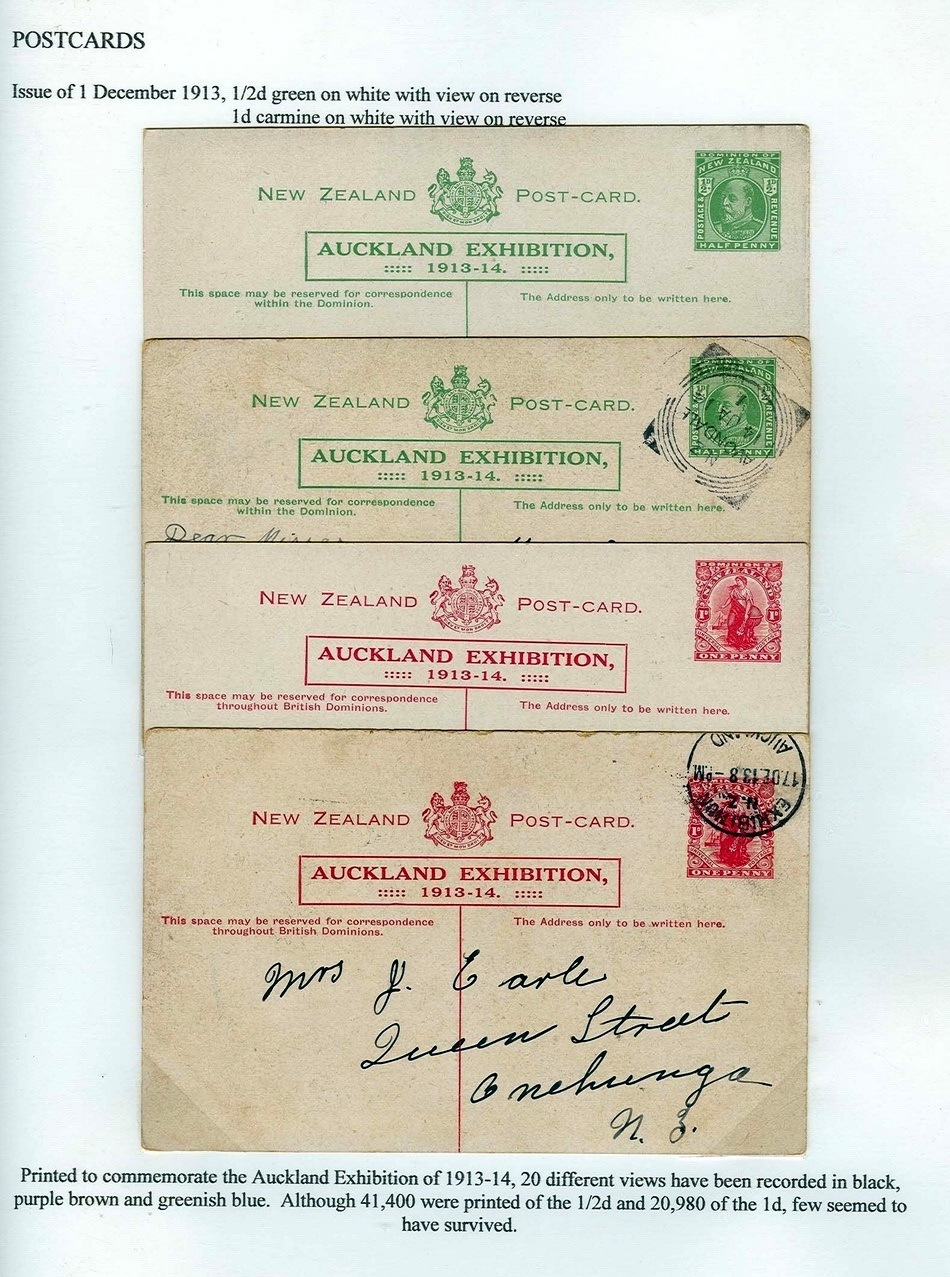 POSTCARDS
Issue of 1 December 1913, 1/2d green on white with view on reverse
1d carmine on white with view on reverse
NEW ZEALAND POST-CARD.
DOMINION OF
NEW ZEALAND
½D ½D
POSTAGE & REVENUE
HALF PENNY
AUCKLAND EXHIBITION,
::::: 1913-14. :::::
This space may be reserved for correspondence
within the Dominion.
The Address only to be written here.
NEW ZEALAND POST-CARD.
DOMINION OF
NEW ZEALAND
REVENUE
HALF PENNY
AVONDALE
AUCKLAND EXHIBITION,
::::: 1913-14. :::::
This space may be reserved for correspondence
within the Dominion.
The Address only to be written here.
Dear
NEW ZEALAND POST-CARD.
DOMINION OF
NEW ZEALAND
1D 1D
ONE PENNY
AUCKLAND EXHIBITION,
::::: 1913-14. :::::
This space may be reserved for correspondence
throughout British Dominions.
The Address only to be written here.
AUCKLAND
17 DE 13 8 - PM
N.Z
EXHIBITION
NEW ZEALAND POST-CARD.
1D
ONE PENNY
AUCKLAND EXHIBITION,
::::: 1913-14. :::::
This space may be reserved for correspondence
throughout British Dominions.
The Address only to be written here.
Mrs J. Earle
Queen Street
Onehunga
N. Z.
Printed to commemorate the Auckland Exhibition of 1913-14, 20 different views have been recorded in black,
purple brown and greenish blue. Although 41,400 were printed of the 1/2d and 20,980 of the 1d, few seemed to
have survived.